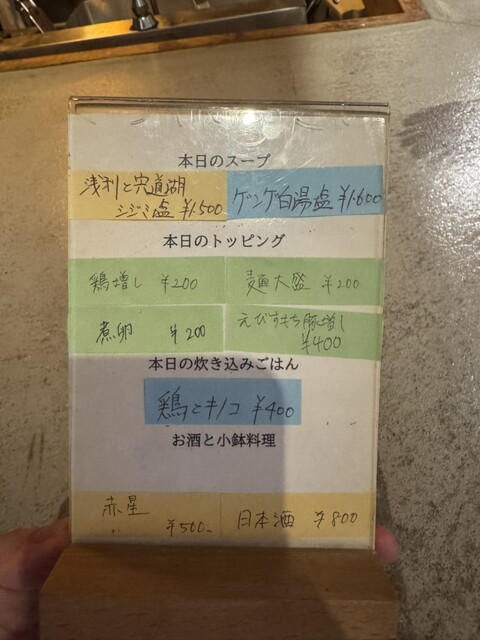 本日のスープ
浅利と宍道湖
シジミ塩 ¥1,500
ゲンゲ白湯塩 ¥1,600
本日のトッピング
鶏増し ¥200
麺大盛 ¥200
煮卵 ¥200
えびすもち豚増し
¥400
本日の炊き込みごはん
鶏とキノコ ¥400
お酒と小鉢料理
赤星
¥500-
日本酒 ¥800